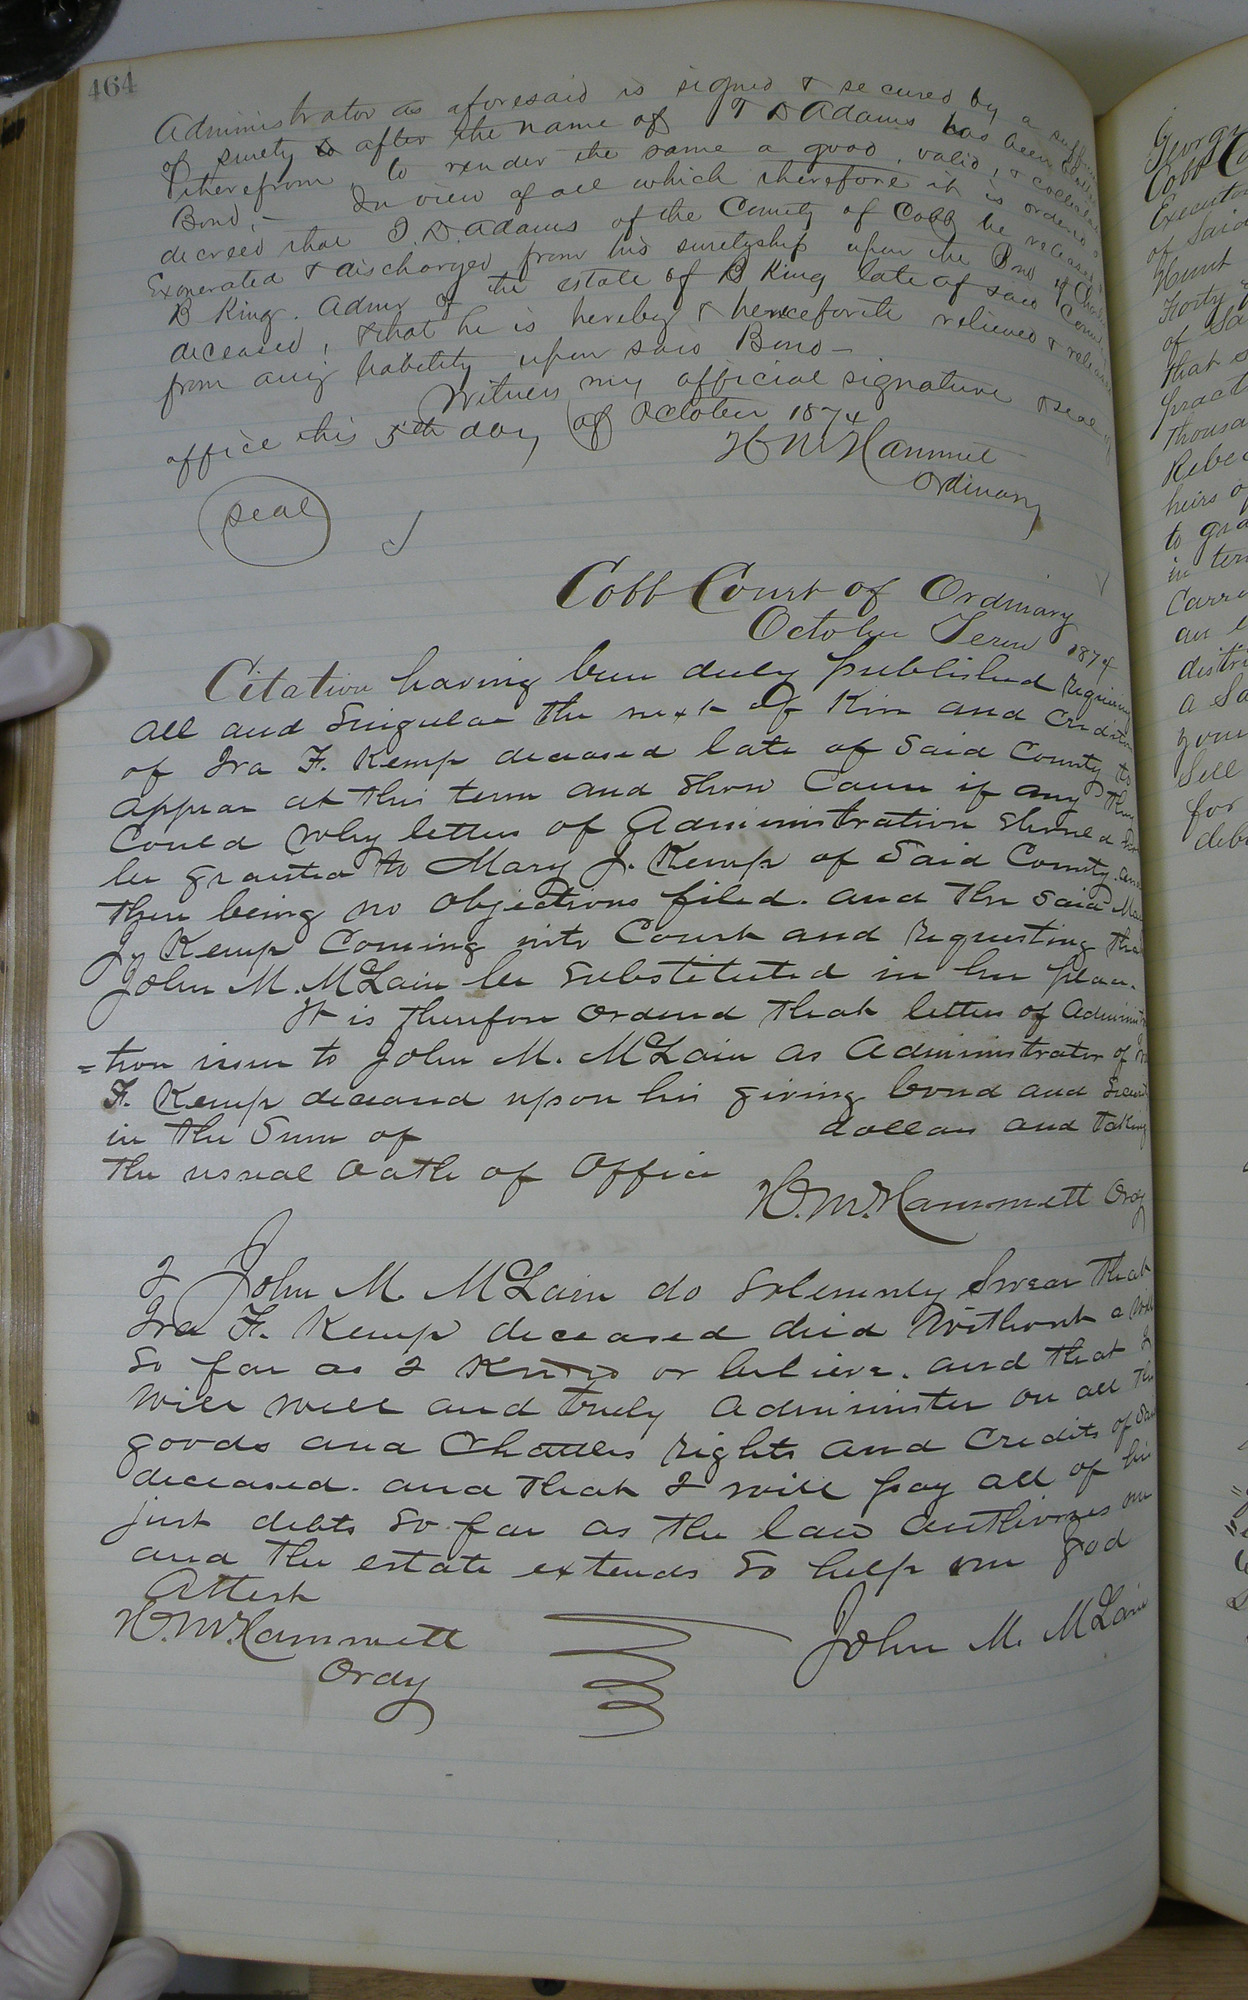 464
Administrator as aforesaid is signed & secured by a
of surety to after the name of T D Adams has been
therefrom to render the same a good, valid, &
Bond,- In view of all which therefore it is ordered &
decreed that T. D. Adams of the County of Cobb be released
Exonerated & discharged from his suretyship upon the Bond of
B King. Admr of the estate of B King late of said County
deceased, & that he is hereby & henceforth relieved &
from any liability upon said Bond -
Witness my official signature & seal of
office this 5th day of October 1874
H M Hammett
Ordinary
seal
Cobb Court of Ordinary
October Term 1874
Citation having been duly published requiring
all and Singular the next Of Kin and Creditors
of Ira F. Kemp deceased late of Said County to
appear at this term and show Cause if any they
Could why letters of Administration should not
be granted to Mary J. Kemp of Said County. and
there being no Objections filed. and the Said Mary
J. Kemp Coming into Court and requesting that
John M. McLain be substituted in her place.
It is therefore Ordered that letters of Administra
=tion issue to John M. McLain as Administrator of Ira
F. Kemp deceased upon his giving bond and Security
in the Sum of dollars and taking
the usual Oath of Office
H. M. Hammett Ordy
I John M. McLain do Solemnly Swear that
Ira F. Kemp deceased died Without a Will
So far as I Know or believe. and that I
will well and truly Administer on all the
goods and Chattles rights and Credits of Said
deceased. and that I will pay all of his
just debts So far as the law Authorizes me
and the estate extends So help me God
Attest
H. M. Hammett
Ordy
John M. McLain
George
Cobb Co
Execut
of Said
Hunt
Forty
of Sa
that s
pract
thousa
Rebec
heirs o
to gra
in ter
Carri
an
distri
a Sa
your
Sell
for
debt